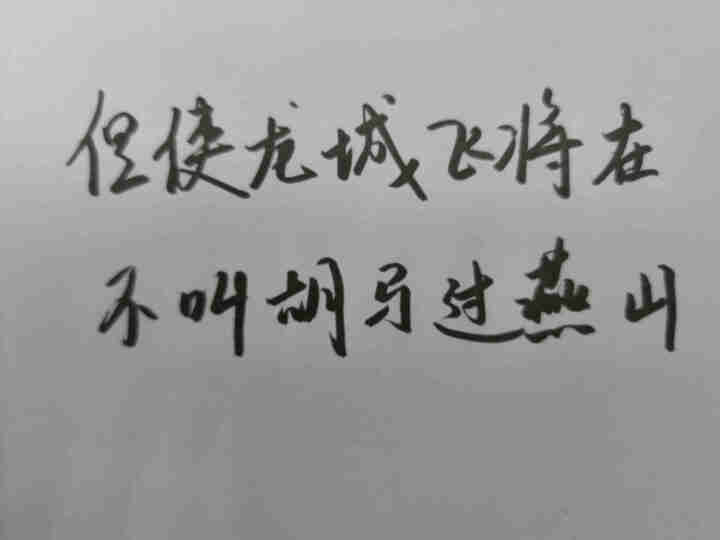 但使龙城飞将在
不叫胡马过燕山